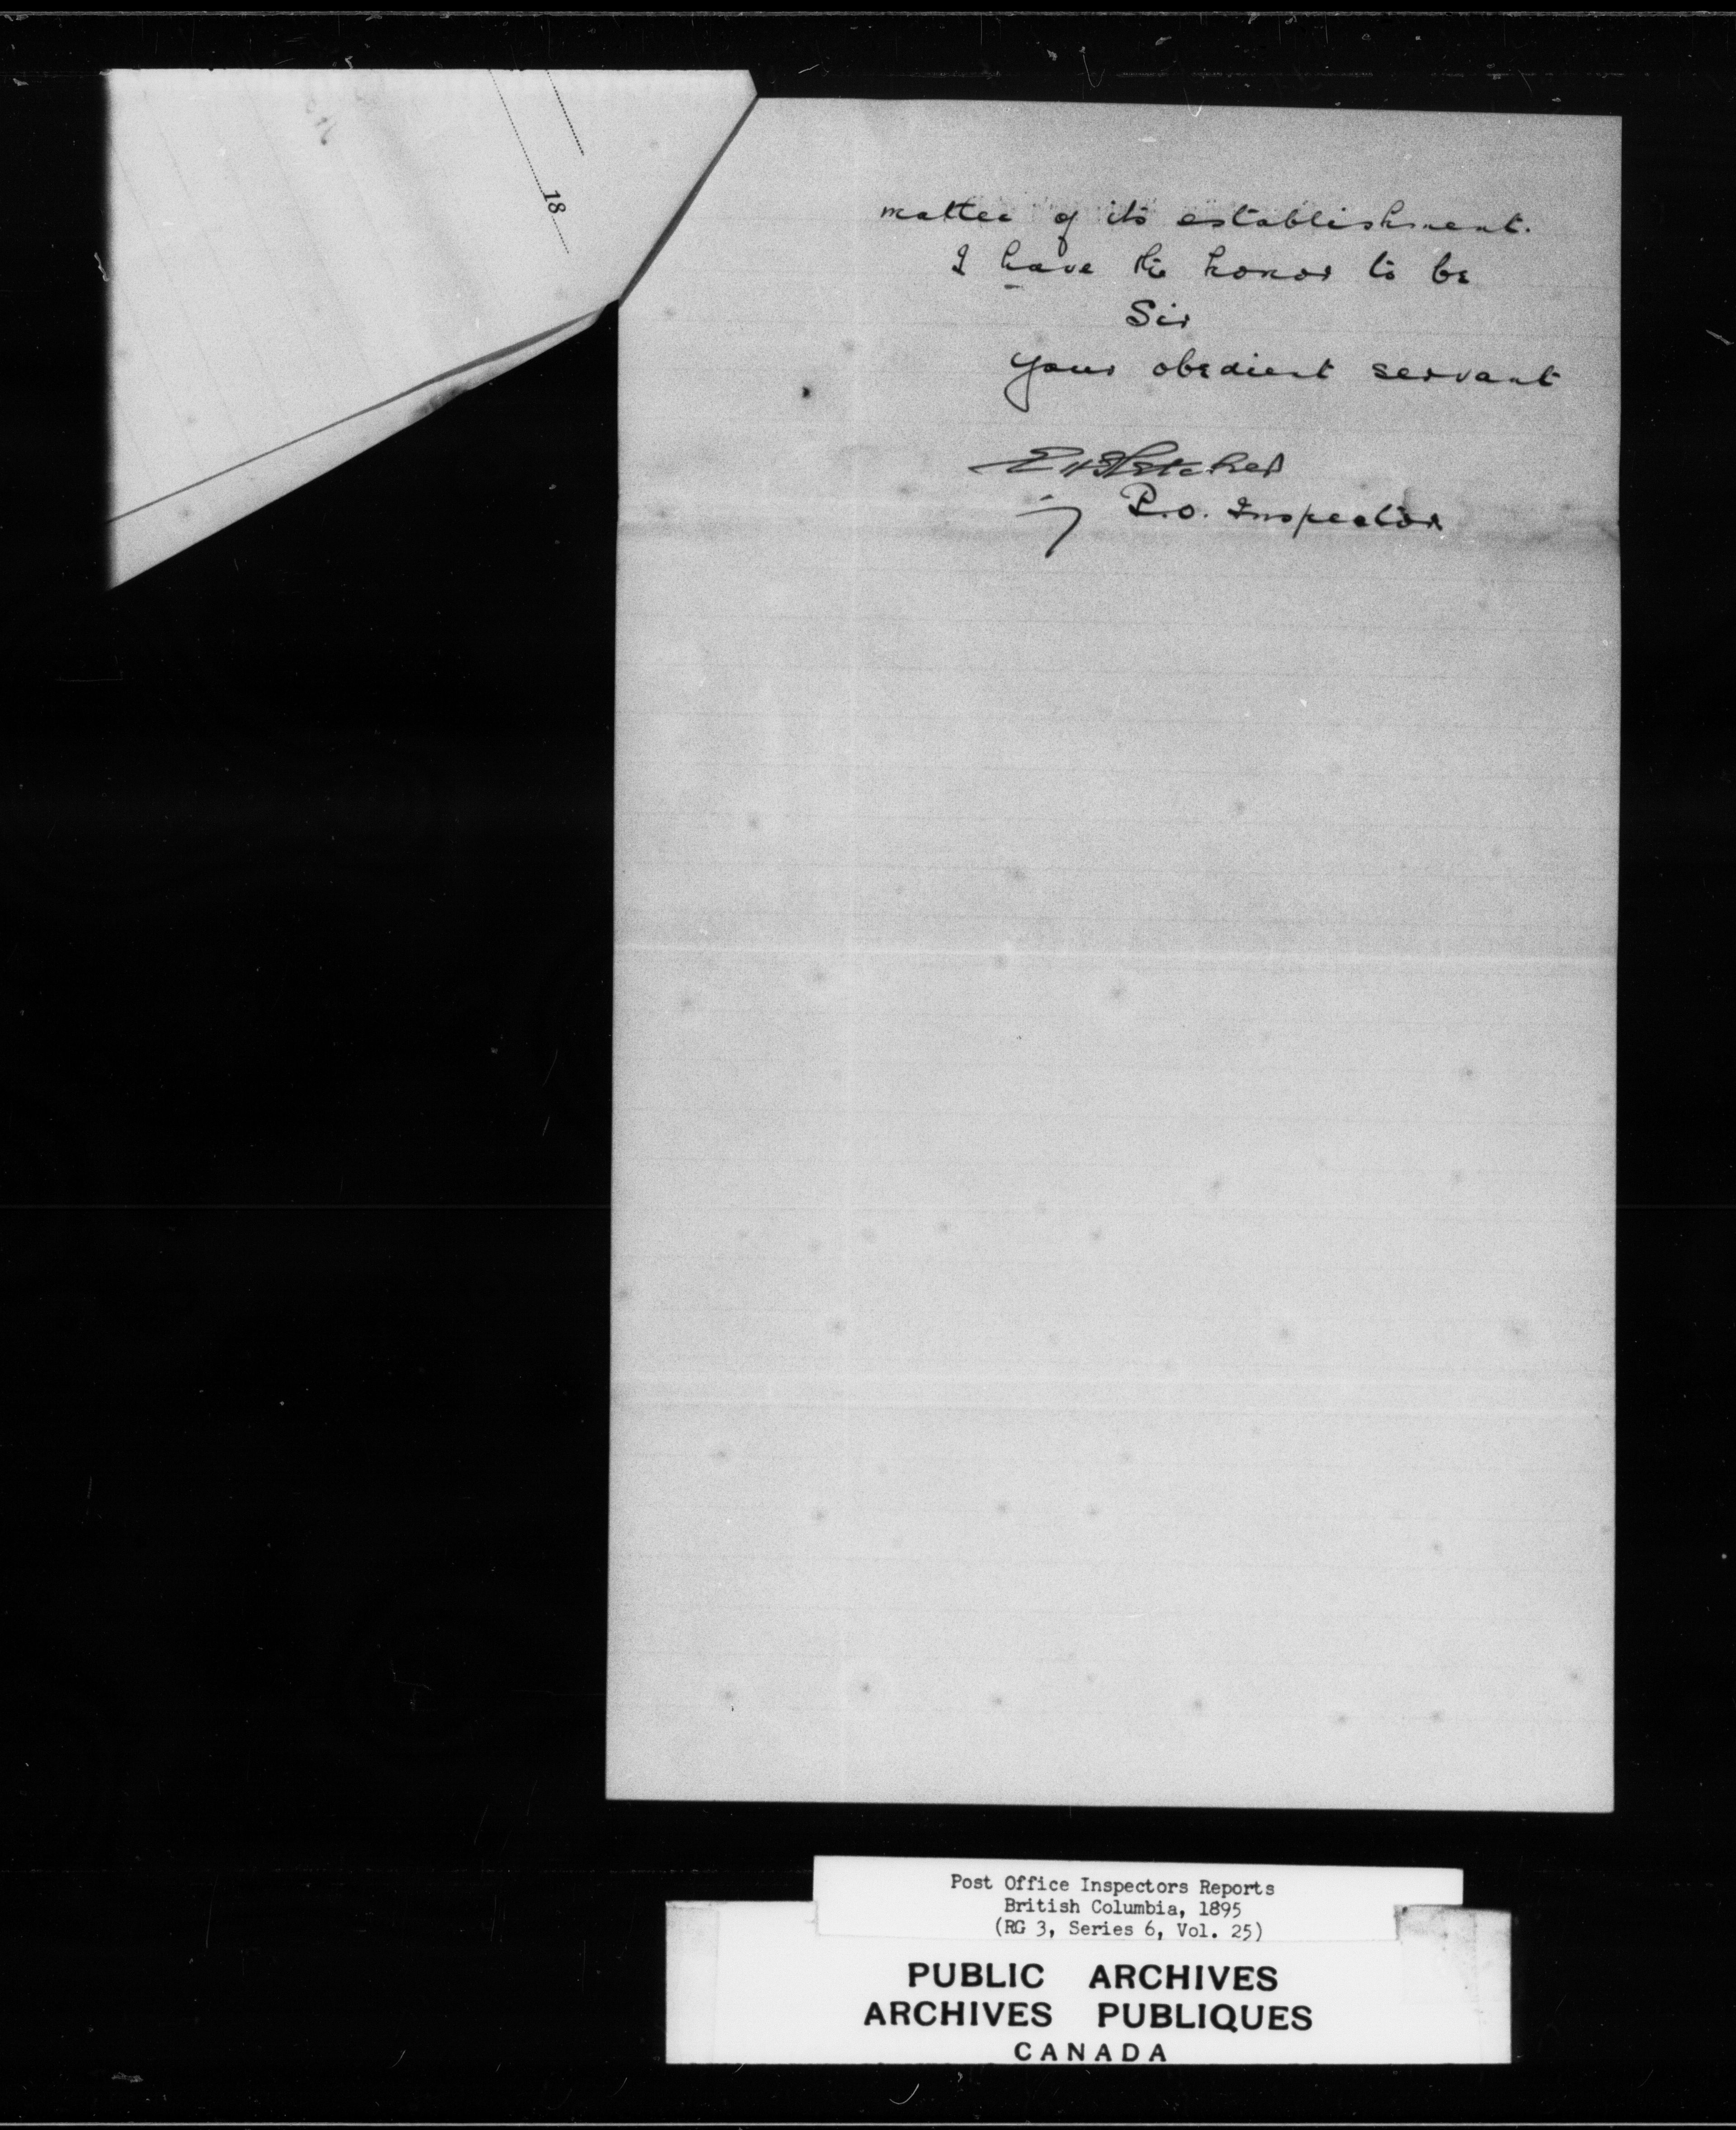 18
matter of its establishment.
I have the honor to be
Sir
Your obedient servant
E H Fletcher
P.O. Inspector
Post Office Inspectors Reports
British Columbia, 1895
(RG 3, Series 6, Vol. 25)
PUBLIC ARCHIVES
ARCHIVES PUBLIQUES
CANADA